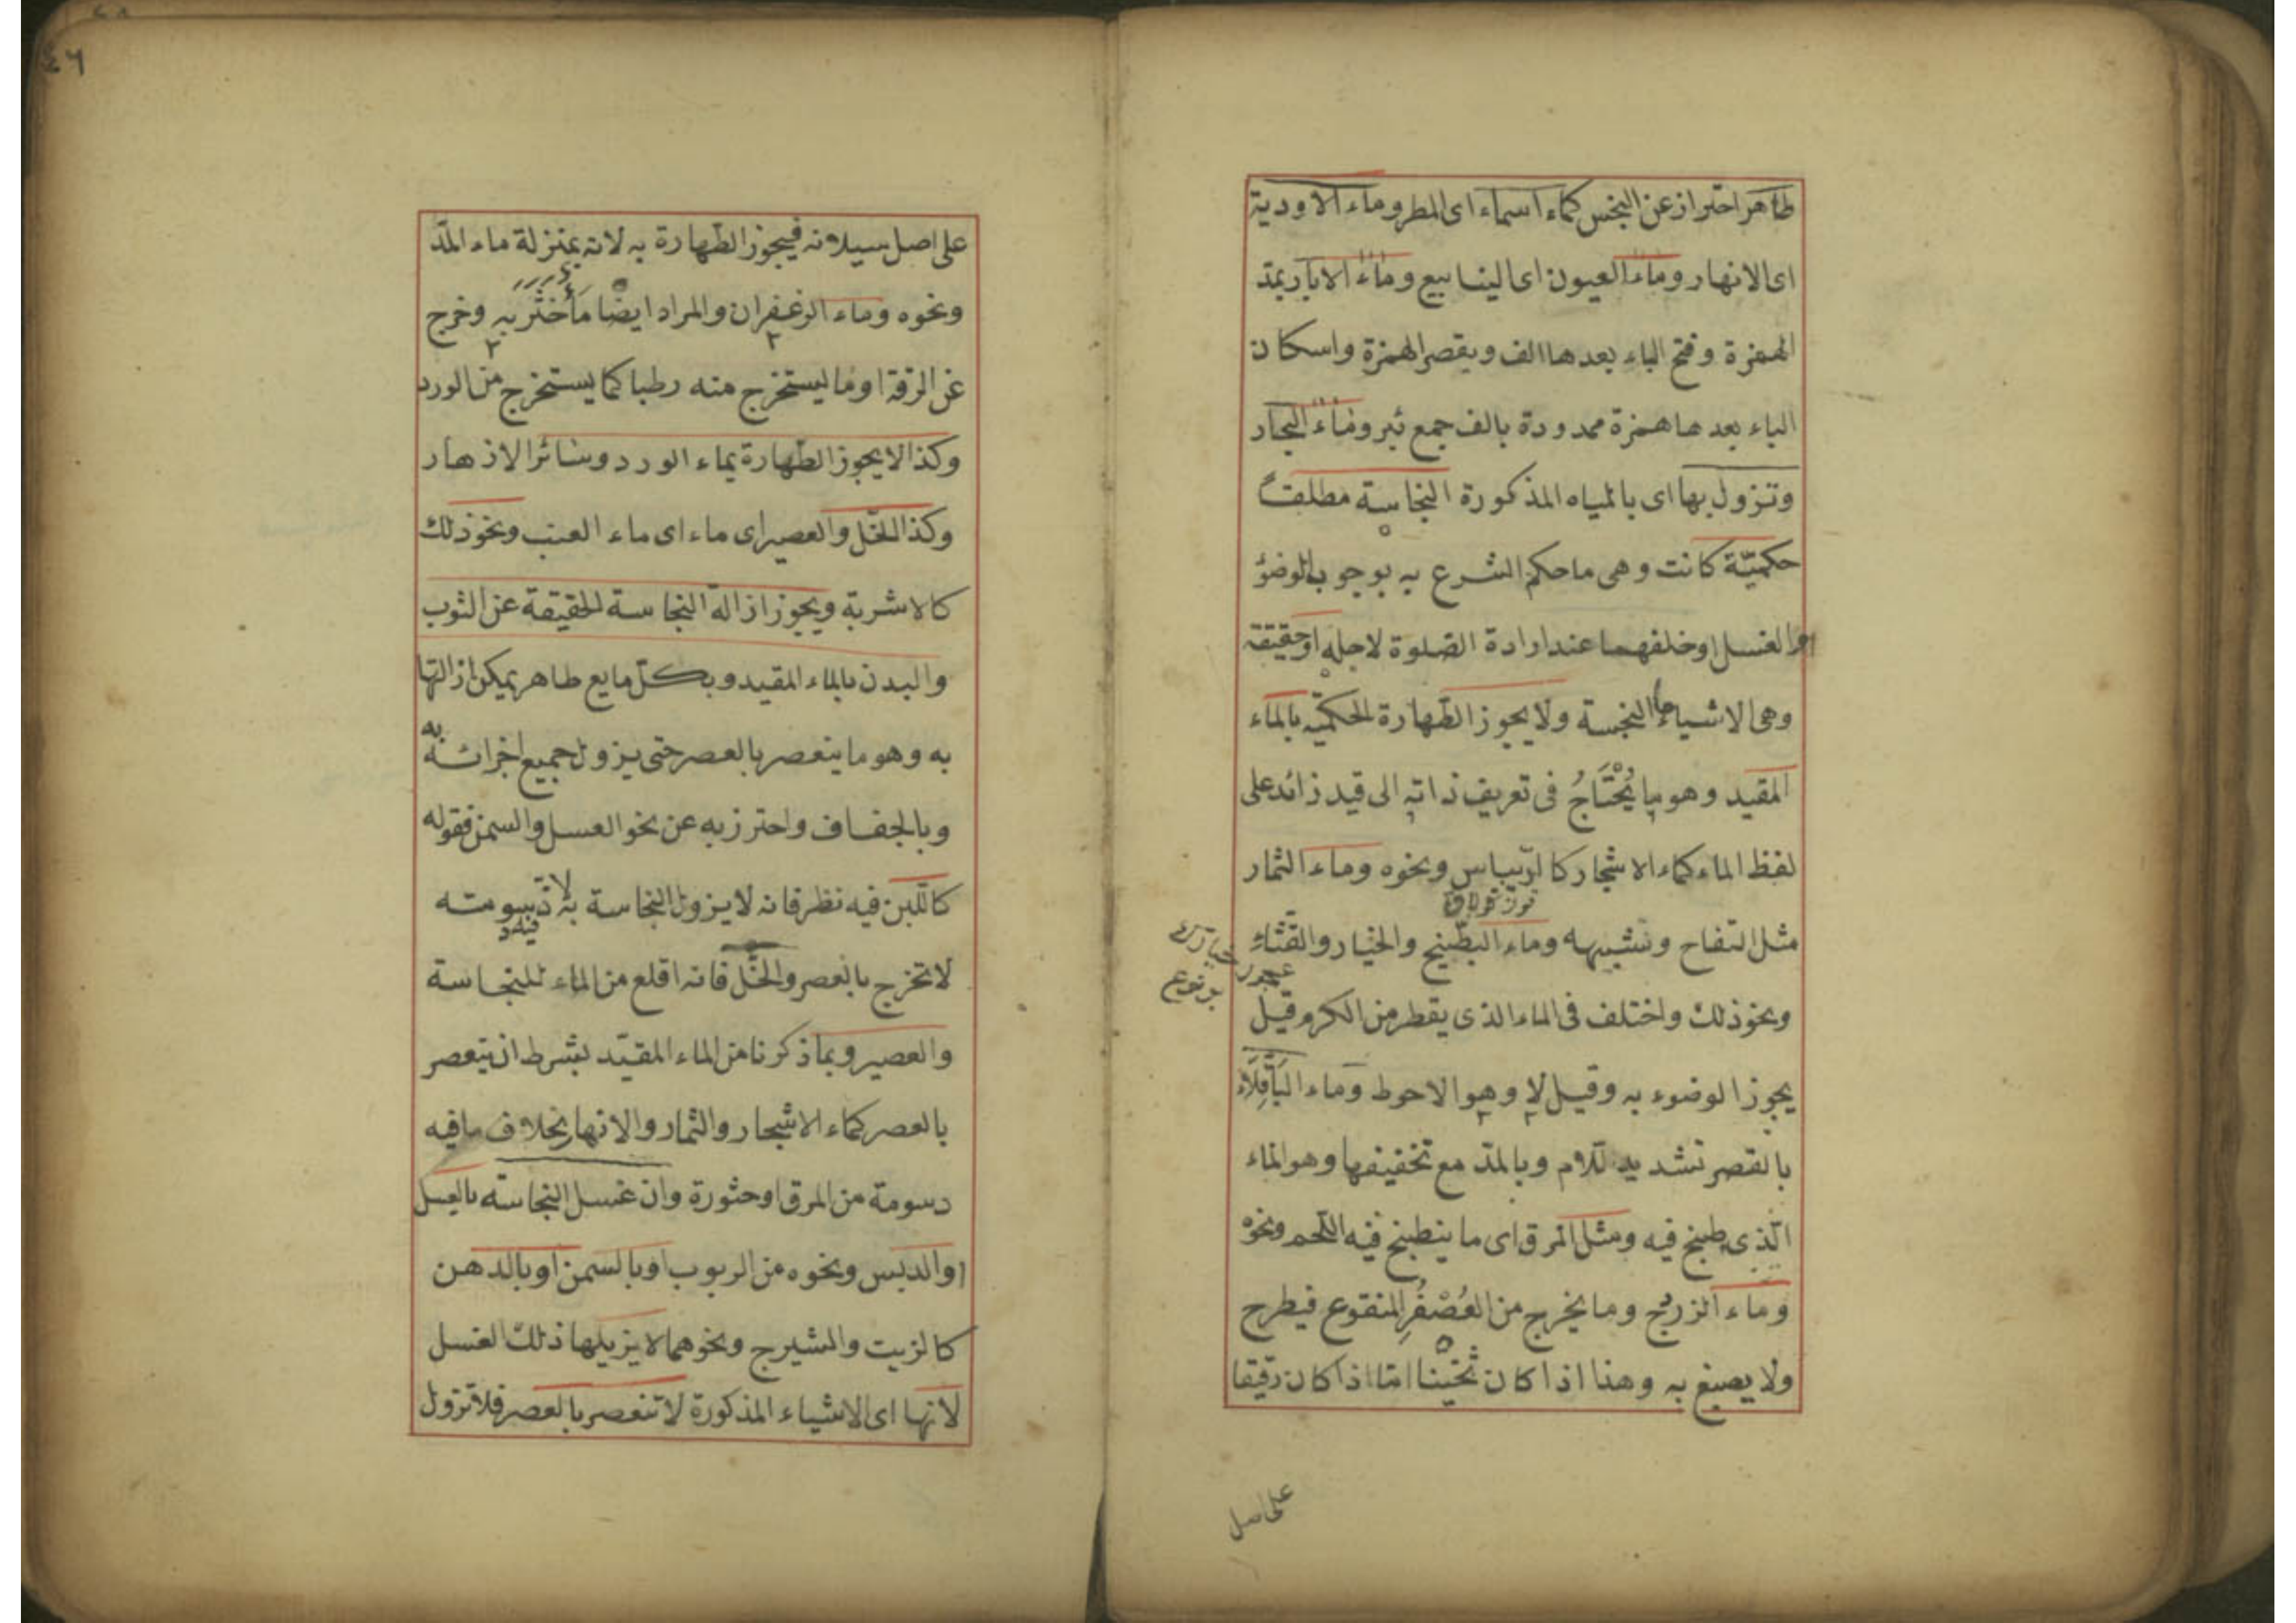 طاهر احتراز عن النجس كماء السماء اى المطر وماء الاودية
اى الانهار وماء العيون اى الينابيع وماء الابار بمدّ
الهمزة وفتح الباء بعدها الف وبقصر الهمزة واسكان
الباء بعدها همزة ممدودة بالف جمع بئر وماء البحار
وتزول بها اى بالمياه المذكورة النجاسة مطلقاً
حكميّة كانت وهى ما حكم الشرع به بوجوب الوضؤ
او الغسل او خلفهما عند ارادة الصلوة لاجله او حقيقة
وهى الاشياء النجسة ولا يجوز الطهارة الحكميّه بالماء
المقيد وهو ما يُحْتَاجُ فى تعريف ذاته الى قيد زائد على
لفظ الماء كماء الاشجار كا لرّيباس ونحوه وماء الثمار
مثل التفاح وتشبيهه وماء البطّيخ والخيار والقثاء
ونحو ذلك واختلف فى الماء الذى يقطر من الكرم قيل
يجوز الوضوء به وقيل لا وهو الاحوط وماء البَاقِلَاء
بالقصر تشديد للام وبالمدّ مع تخفيفها وهو الماء
الّذى طبخ فيه ومثل المرق اى ما ينطبخ فيه اللحم ونحوه
وماء الزردج وما يخرج من العُصْفُرِ المنقوع فيطرح
ولا يصبغ به وهذا اذا كان ثخينا امّا اذا كان رقيقا
على اصل
٤٦
على اصل سيلانه فيجوز الطهارة به لانه بمنزلة ماء المدّ
ونحوه وماء الزعفران والمراد ايضًا مَا خَثَرَ به وخرج
عن الرقة او ما يستخرج منه رطبا كما يستخرج من الورد
وكذا لا يجوز الطهارة بماء الورد وسائر الازهار
وكذا الخلّ والعصير اى ماء اى ماء العنب ونحو ذلك
كالاشربة ويجوز ازالة النجاسة الحقيقة عن الثوب
والبدن بالماء المقيد وبكلّ مايع طاهر يمكن ازالتها
به وهو ما ينعصر بالعصر حتى يزول جميع اجزائه به
وبالجفاف واحترز به عن نحو العسل والسمن فقوله
كاللبن فيه نظر فانه لا يزول النجاسة به لانّ دسومته
فيه
لا تخرج بالعصر والخلّ فانه اقلع من الماء للنجاسة
والعصير وبما ذكرنا من الماء المقيّد بشرط ان يتعصر
بالعصر كماء الاشجار والثمار والانهار بخلاف ما فيه
دسومة من المرق او حثورة وان غسل النجاسة بالعسل
او الدبس ونحوه من الربوب او بالسمن او بالدهن
كالزيت والشيرج ونحوهما لا يزيلها ذلك الغسل
لانها اى الاشياء المذكورة لا تنعصر بالعصر فلا تزول